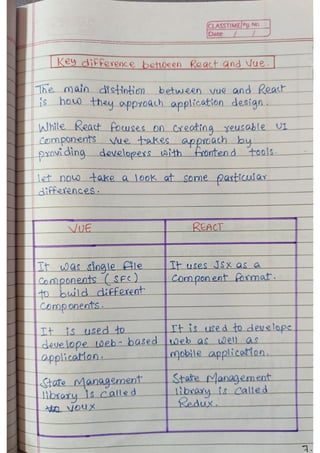 CLASSTIME Pg. No.
Date / /
Key difference between React and Vue.
The main distintion between vue and React
is how they approach application design.
While React focuses on creating reusable UI
components vue takes approach by
providing developers with frontend tools.
let now take a look at some particular
differences.
VUE
REACT
It was single file
components (SFC)
to build different
components.
It uses JSX as a
component format.
It is used to
develope web-based
application.
It is used to develope
web as well as
mobile application.
State Management
library is called
voux
State Management
library is called
Redux.
7.